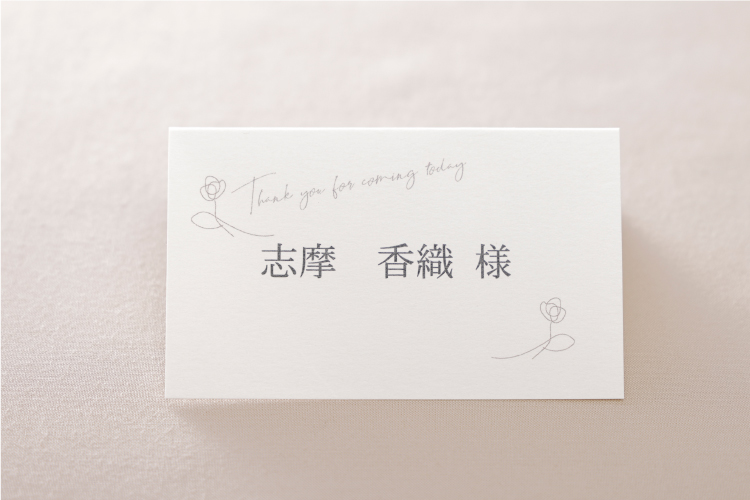 Thank you for coming today
志摩　香織 様